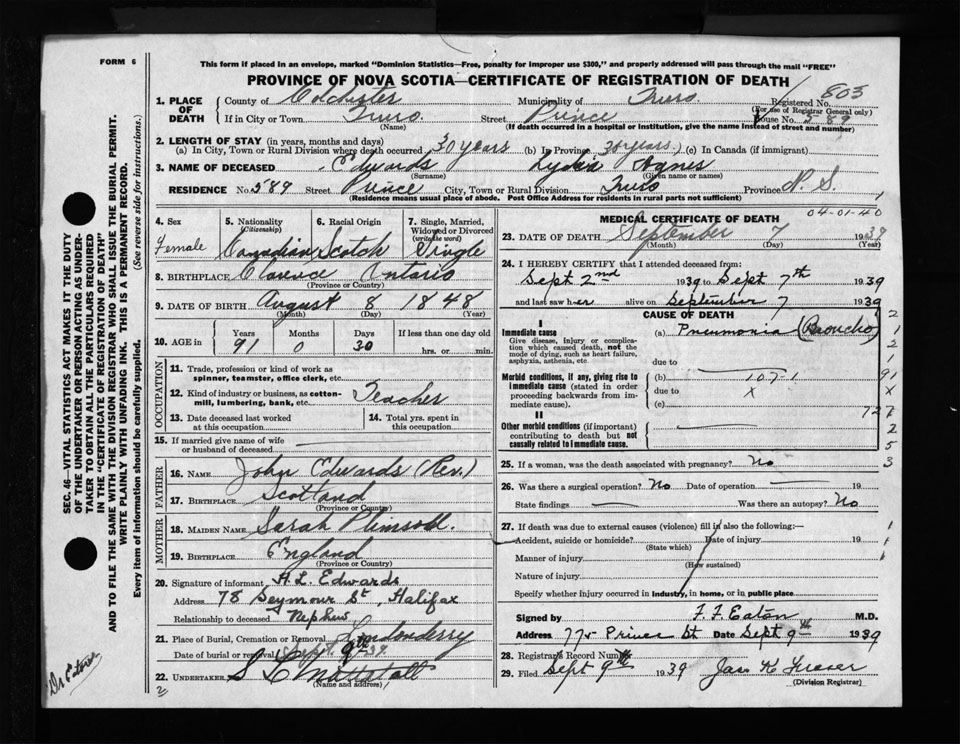 FORM 6
This form if placed in an envelope, marked "Dominion Statistics—Free, penalty for improper use $300," and properly addressed will pass through the mail "FREE"
PROVINCE OF NOVA SCOTIA—CERTIFICATE OF REGISTRATION OF DEATH
1. PLACE OF DEATH
County of Colchester Municipality of Truro Registered No. 803
(For use of Registrar General only)
If in City or Town Truro Street Prince House No. 589
(Name) (If death occurred in a hospital or institution, give the name instead of street and number)
2. LENGTH OF STAY (in years, months and days)
(a) In City, Town or Rural Division where death occurred 30 years (b) In Province 30 years (c) In Canada (if immigrant)
3. NAME OF DECEASED Edwards Lydia Agnes
(Surname) (Given name or names)
RESIDENCE No. 589 Street Prince City, Town or Rural Division Truro Province N. S.
(Residence means usual place of abode. Post Office Address for residents in rural parts not sufficient)
4. Sex Female
5. Nationality (Citizenship) Canadian
6. Racial Origin Scotch
7. Single, Married, Widowed or Divorced (write the word) Single
8. BIRTHPLACE Clarence Ontario
(Province or Country)
9. DATE OF BIRTH August 8 1848
(Month) (Day) (Year)
10. AGE in Years 91 Months 0 Days 30 If less than one day old hrs. or min.
OCCUPATION
11. Trade, profession or kind of work as spinner, teamster, office clerk, etc.
12. Kind of industry or business, as cotton-mill, lumbering, bank, etc. Teacher
13. Date deceased last worked at this occupation
14. Total yrs. spent in this occupation
15. If married give name of wife or husband of deceased
FATHER
16. NAME John Edwards (Rev.)
17. BIRTHPLACE Scotland
(Province or Country)
MOTHER
18. MAIDEN NAME Sarah Plimsoll
19. BIRTHPLACE England
(Province or Country)
20. Signature of informant H. L. Edwards
Address 78 Seymour St, Halifax
Relationship to deceased Nephew
21. Place of Burial, Cremation or Removal Londonderry
Date of burial or removal Sept. 9th 39
22. UNDERTAKER
(Name and address)
MEDICAL CERTIFICATE OF DEATH
04-01-40
23. DATE OF DEATH September 7 1939
(Month) (Day) (Year)
24. I HEREBY CERTIFY that I attended deceased from:
Sept 2nd 1939 to Sept 7th 1939
and last saw her alive on September 7 1939
CAUSE OF DEATH
I
Immediate cause
Give disease, injury or complication which caused death, not the mode of dying, such as heart failure, asphyxia, asthenia, etc.
(a) Pneumonia (Broncho)
due to
Morbid conditions, if any, giving rise to immediate cause (stated in order proceeding backwards from immediate cause).
(b) 107-1
due to X
(c)
II
Other morbid conditions (if important) contributing to death but not causally related to immediate cause.
2
1
2
1
91
X
2
5
3
25. If a woman, was the death associated with pregnancy? No
26. Was there a surgical operation? No Date of operation 19
State findings Was there an autopsy? No
27. If death was due to external causes (violence) fill in also the following:—
Accident, suicide or homicide? Date of injury 19
(State which)
Manner of injury
(How sustained)
Nature of injury
Specify whether injury occurred in industry, in home, or in public place
Signed by F. F. Eaton M.D.
Address 775 Prince St Date Sept 9th 1939
28. Registrar's Record Number
29. Filed Sept 9th 1939 Jas K Fraser
(Division Registrar)
SEC. 46—VITAL STATISTICS ACT MAKES IT THE DUTY
OF THE UNDERTAKER OR PERSON ACTING AS UNDER-
TAKER TO OBTAIN ALL THE PARTICULARS REQUIRED
IN THE "CERTIFICATE OF REGISTRATION OF DEATH"
AND TO FILE THE SAME WITH THE DIVISION REGISTRAR WHO SHALL ISSUE THE BURIAL PERMIT.
WRITE PLAINLY WITH UNFADING INK. THIS IS A PERMANENT RECORD.
Every item of information should be carefully supplied. (See reverse side for instructions.)